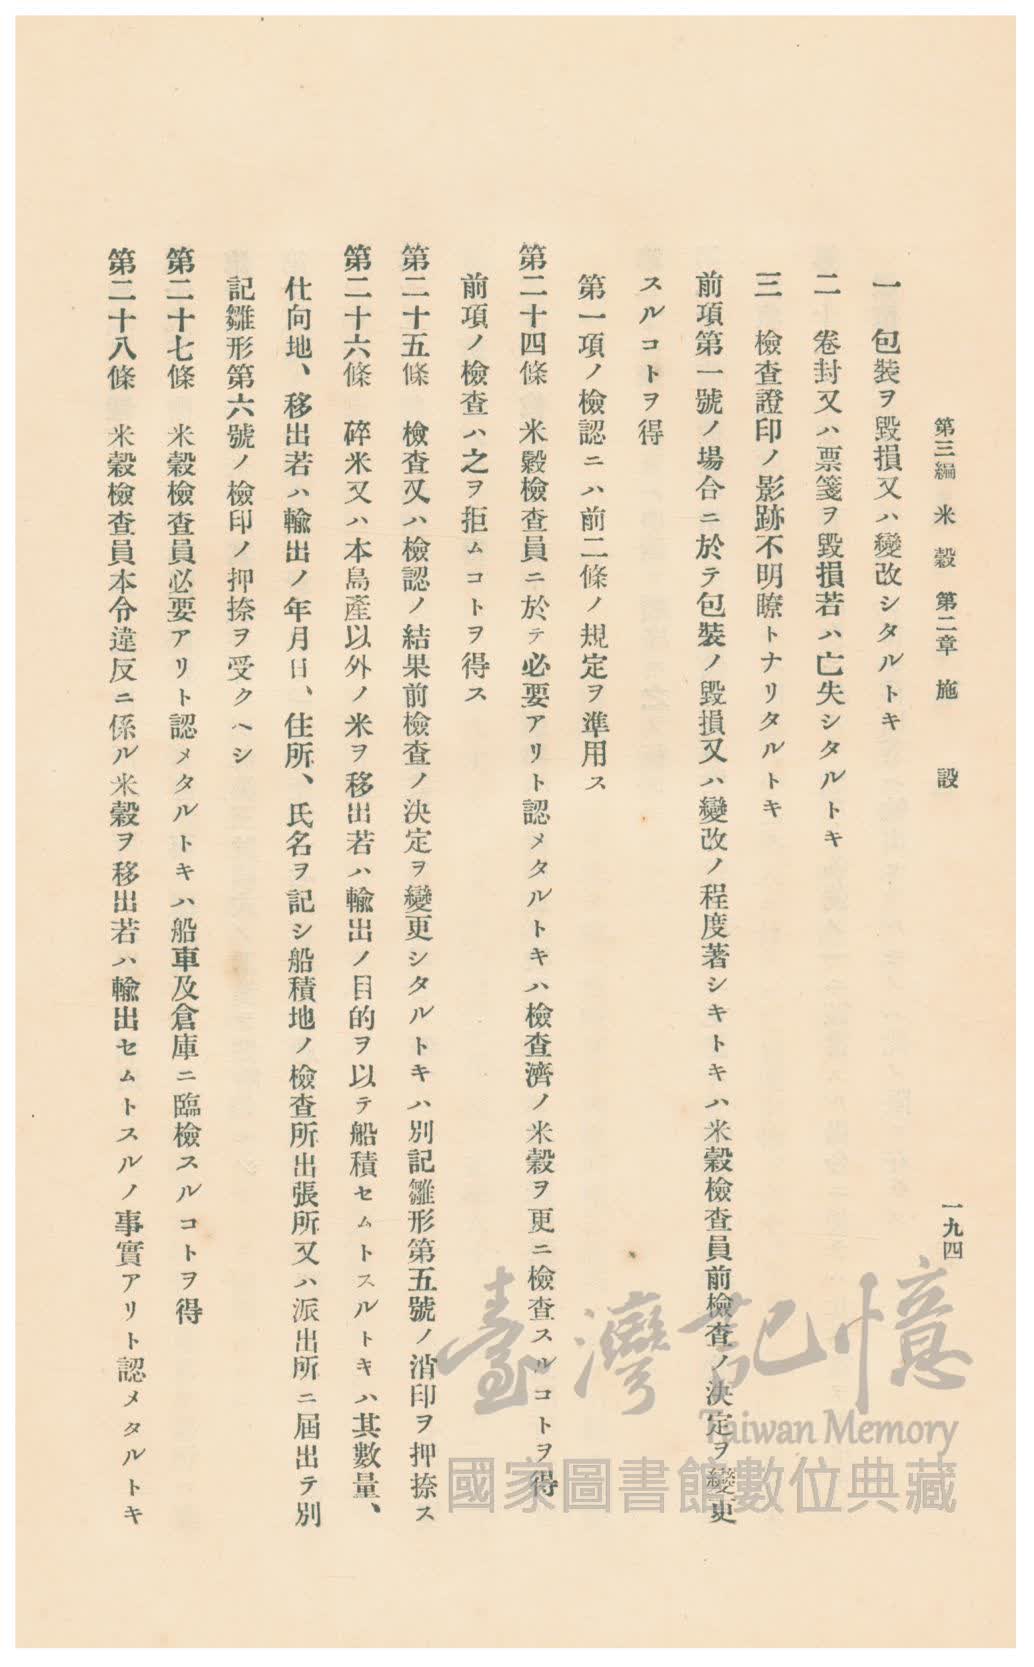 第三編 米穀 第二章 施設
一九四
一 包裝ヲ毀損又ハ變改シタルトキ
二 卷封又ハ票箋ヲ毀損若ハ亡失シタルトキ
三 檢查證印ノ影跡不明瞭トナリタルトキ
前項第一號ノ場合ニ於テ包裝ノ毀損又ハ變改ノ程度著シキトキハ米穀檢查員前檢查ノ決定ヲ變更
スルコトヲ得
第一項ノ檢認ニハ前二條ノ規定ヲ準用ス
第二十四條 米穀檢查員ニ於テ必要アリト認メタルトキハ檢查濟ノ米穀ヲ更ニ檢查スルコトヲ得
前項ノ檢查ハ之ヲ拒ムコトヲ得ス
第二十五條 檢查又ハ檢認ノ結果前檢查ノ決定ヲ變更シタルトキハ別記雛形第五號ノ消印ヲ押捺ス
第二十六條 碎米又ハ本島產以外ノ米ヲ移出若ハ輸出ノ目的ヲ以テ船積セムトスルトキハ其數量、
仕向地、移出若ハ輸出ノ年月日、住所、氏名ヲ記シ船積地ノ檢查所出張所又ハ派出所ニ屆出テ別
記雛形第六號ノ檢印ノ押捺ヲ受クヘシ
第二十七條 米穀檢查員必要アリト認メタルトキハ船車及倉庫ニ臨檢スルコトヲ得
第二十八條 米穀檢查員本令違反ニ係ル米穀ヲ移出若ハ輸出セムトスルノ事實アリト認メタルトキ
臺灣記憶
Taiwan Memory
國家圖書館數位典藏